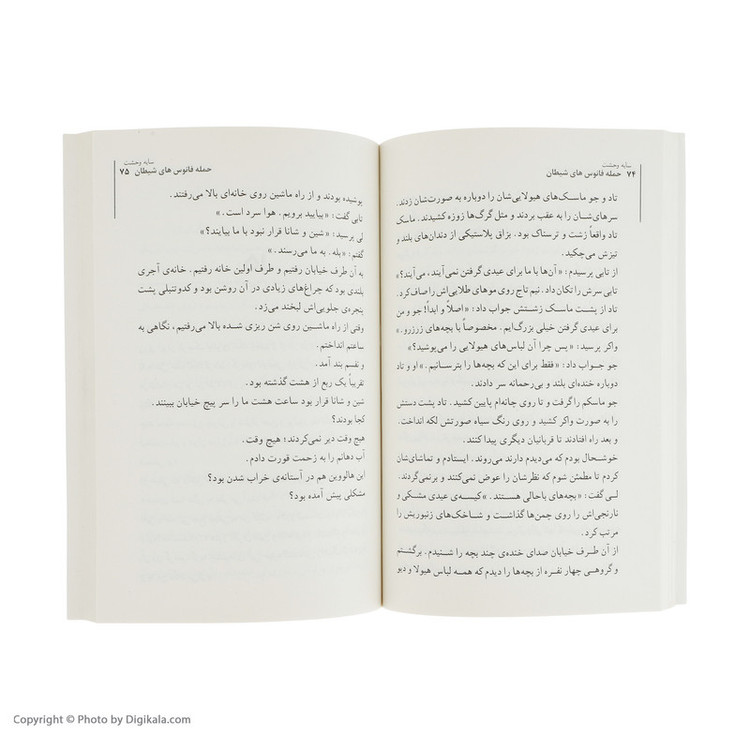 سایه وحشت
۷۴ حمله فانوس های شیطان
تاد و جو ماسک‌های هیولایی‌شان را دوباره به صورت‌شان زدند.
سرهای‌شان را به عقب بردند و مثل گرگ‌ها زوزه کشیدند. ماسک
تاد واقعاً زشت و ترسناک بود. بزاق پلاستیکی از دندان‌های بلند و
تیزش می‌چکید.
از تابی پرسیدم: «آن‌ها با ما برای عیدی گرفتن نمی‌آیند، می‌آیند؟»
تابی سرش را تکان داد. نیم تاج روی موهای طلایی‌اش را صاف کرد.
تاد از پشت ماسک زشتش جواب داد: «اصلاً و ابداً! جو و من
برای عیدی گرفتن خیلی بزرگ‌ایم. مخصوصاً با بچه‌های زرزرو.»
واکر پرسید: «پس چرا آن لباس‌های هیولایی را می‌پوشید؟»
جو جواب داد: «فقط برای این که بچه‌ها را بترسانیم.» او و تاد
دوباره خنده‌ای بلند و بی‌رحمانه سر دادند.
جو ماسکم را گرفت و تا روی چانه‌ام پایین کشید. تاد پشت دستش
را به صورت واکر کشید و روی رنگ سیاه صورتش لکه انداخت.
و بعد راه افتادند تا قربانیان دیگری پیدا کنند.
خوشحال بودم که می‌دیدم دارند می‌روند. ایستادم و تماشای‌شان
کردم تا مطمئن شوم که نظرشان را عوض نمی‌کنند و برنمی‌گردند.
لی گفت: «بچه‌های باحالی هستند.» کیسه‌ی عیدی مشکی و
نارنجی‌اش را روی چمن‌ها گذاشت و شاخک‌های زنبوریش را
مرتب کرد.
از آن طرف خیابان صدای خنده‌ی چند بچه را شنیدم. برگشتم
و گروهی چهار نفره از بچه‌ها را دیدم که همه لباس هیولا و دیو
سایه وحشت
حمله فانوس های شیطان ۷۵
پوشیده بودند و از راه ماشین روی خانه‌ای بالا می‌رفتند.
تابی گفت: «بیایید برویم. هوا سرد است.»
لی پرسید: «شین و شانا قرار نبود با ما بیایند؟»
گفتم: «بله. به ما می‌رسند.»
به آن طرف خیابان رفتیم و طرف اولین خانه رفتیم. خانه‌ی آجری
بلندی بود که چراغ‌های زیادی در آن روشن بود و کدوتنبلی پشت
پنجره‌ی جلویی‌اش لبخند می‌زد.
وقتی از راه ماشین روی شن ریزی شده بالا می‌رفتیم، نگاهی به
ساعتم انداختم.
و نفسم بند آمد.
تقریباً یک ربع از هشت گذشته بود.
شین و شانا قرار بود ساعت هشت ما را سر پیچ خیابان ببینند.
کجا بودند؟
هیچ وقت دیر نمی‌کردند؛ هیچ وقت.
آب دهانم را به زحمت قورت دادم.
این هالووین هم در آستانه‌ی خراب شدن بود؟
مشکلی پیش آمده بود؟
Copyright © Photo by Digikala.com